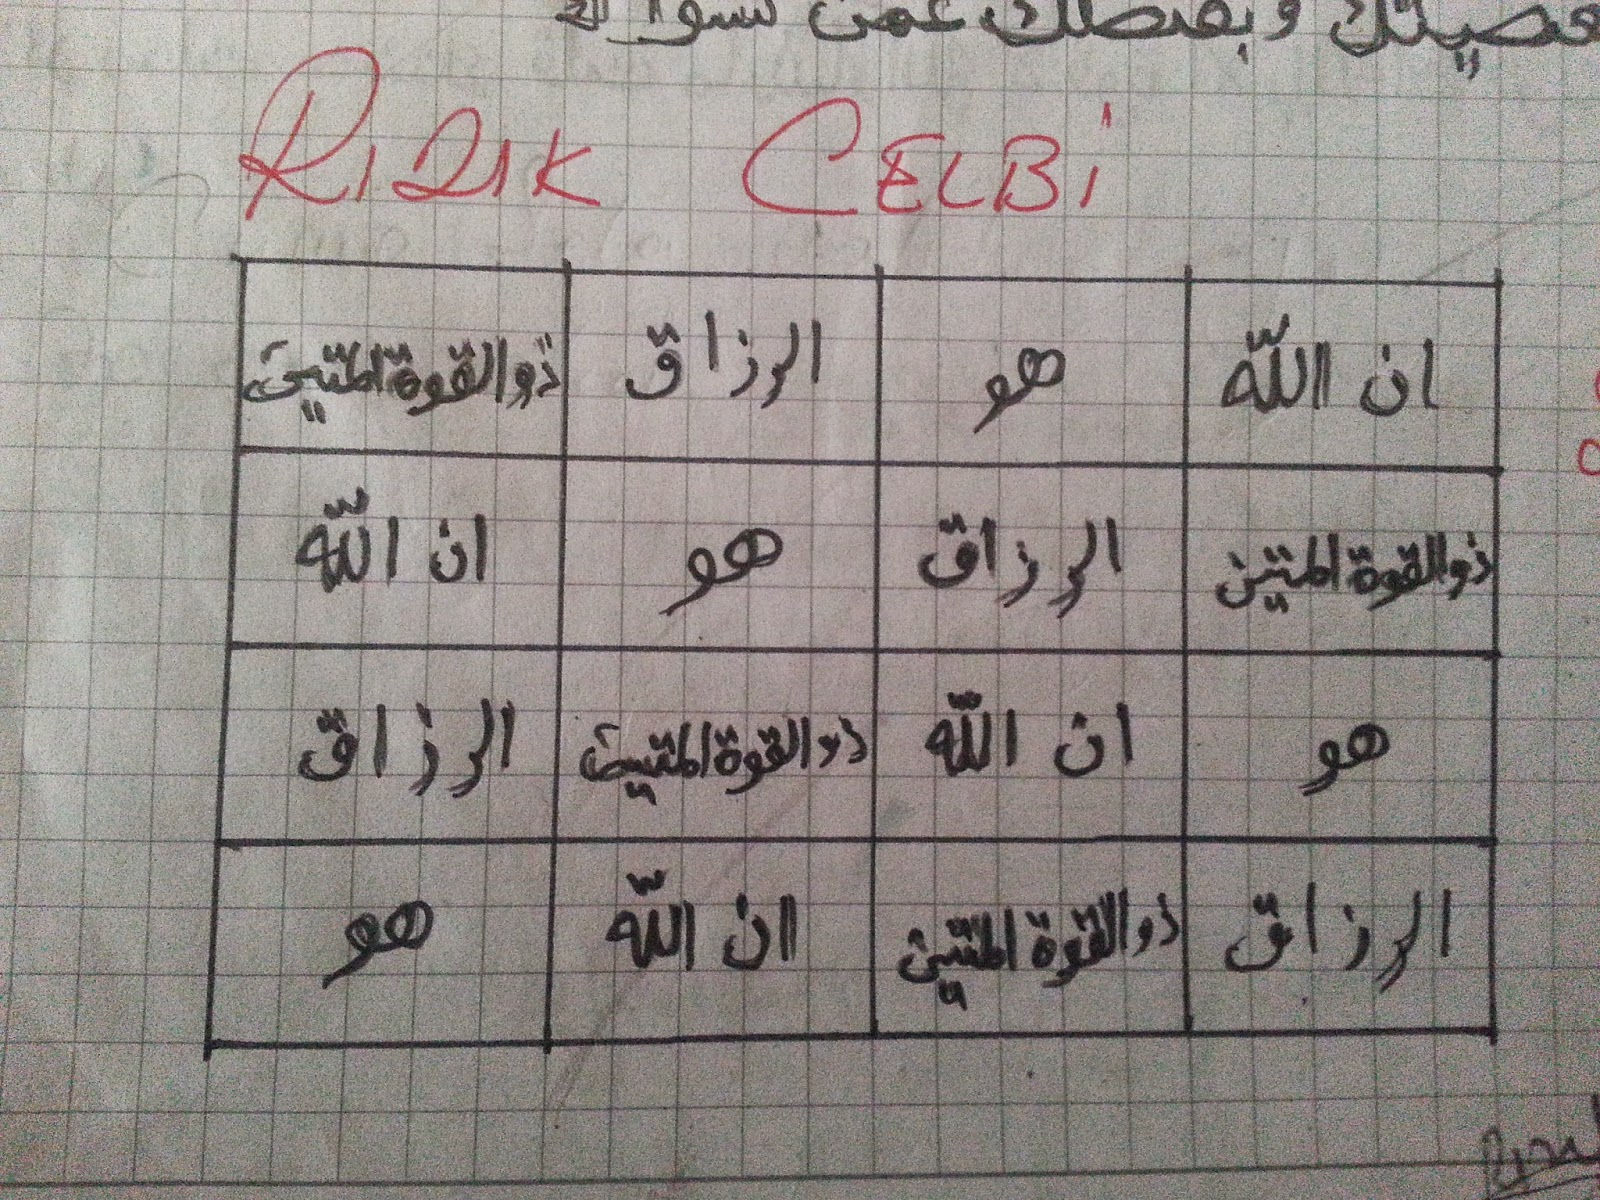 وبفضلك عمن سواك
RIZIK CELBİ
ان الله هو الرزاق ذو القوة المتين
ذو القوة المتين الرزاق هو ان الله
هو ان الله ذو القوة المتين الرزاق
الرزاق ذو القوة المتين ان الله هو